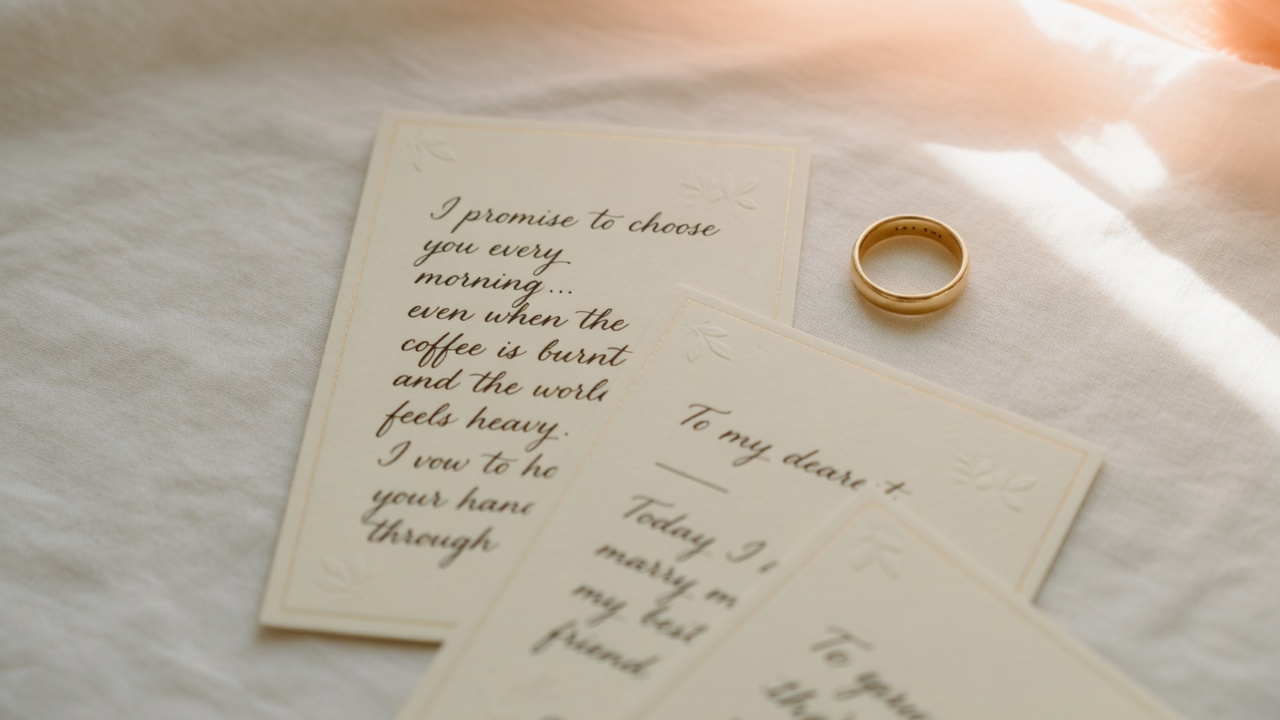 I promise to choose
you every
morning...
even when the
coffee is burnt
and the
feels heavy.
I vow to
your
through
To my
Today I
marry
my best
friend
To